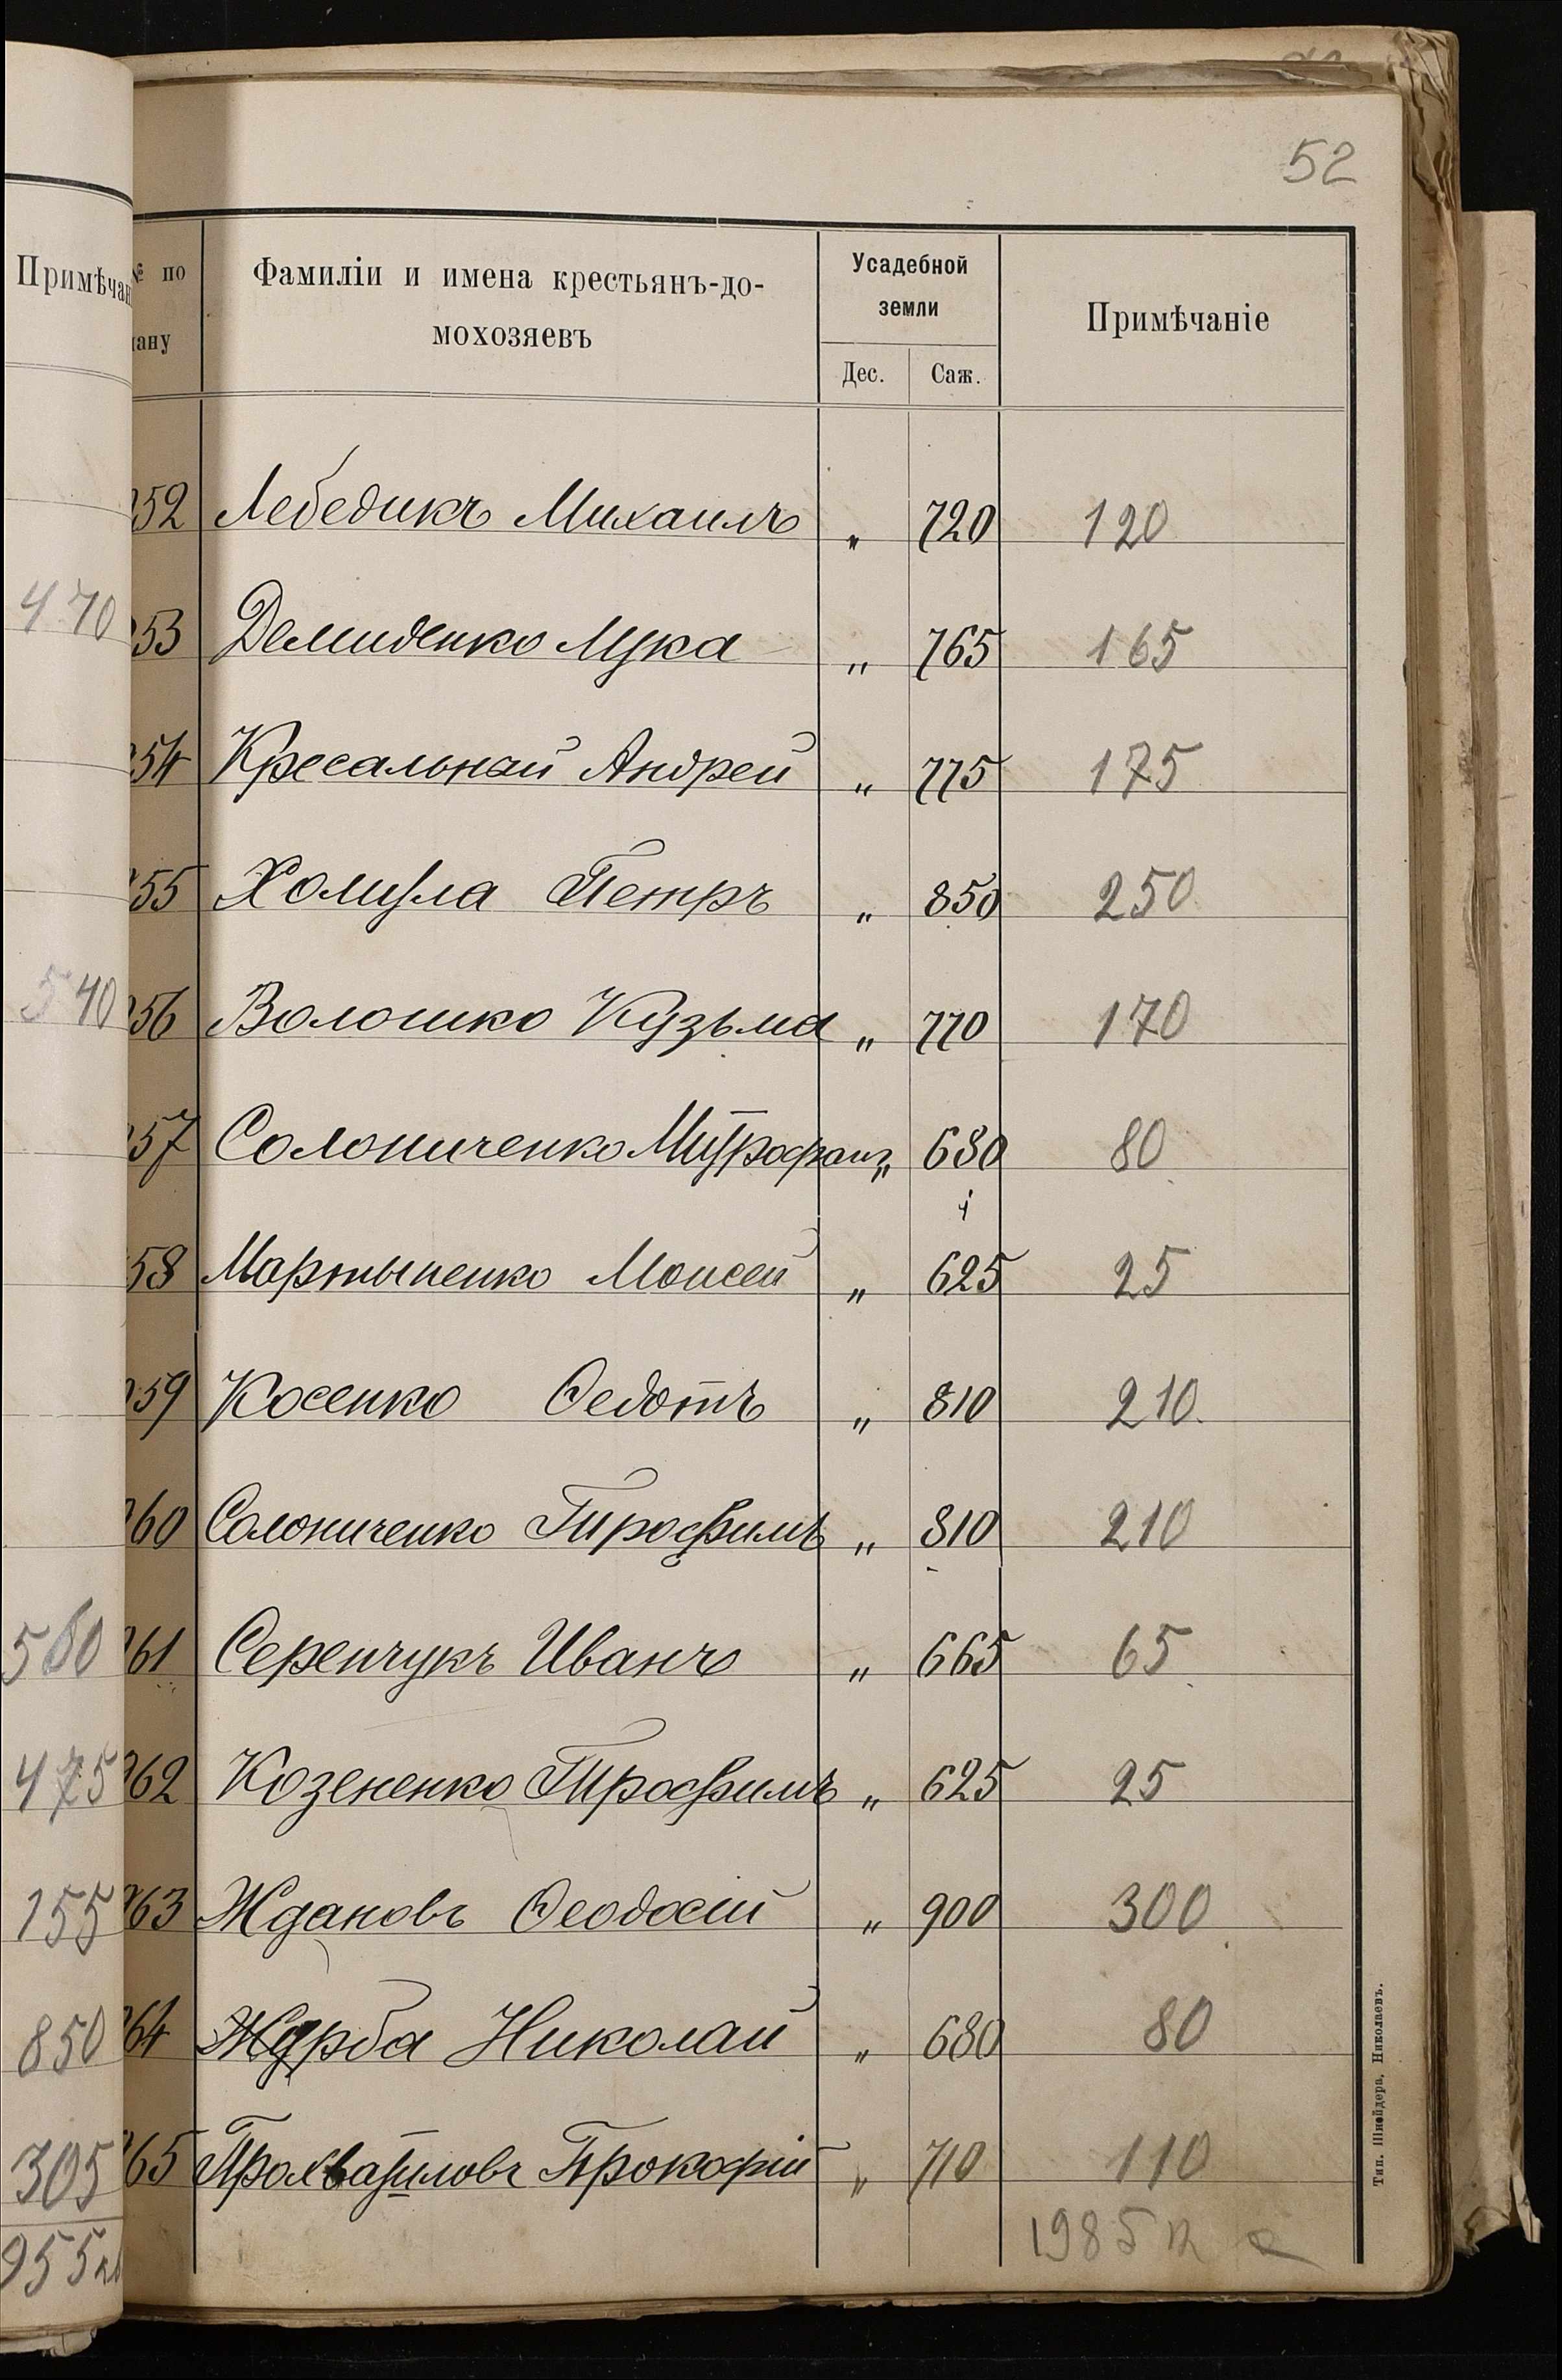 52
Примѣчан
№ по
ану
Фамиліи и имена крестьянъ-до-
мохозяевъ
Усадебной
земли
Дес. Саж.
Примѣчаніе
52 Лебедикъ Михаилъ „ 720 120
470
53 Демиденко Лука „ 765 165
54 Кресальный Андрей „ 775 175
55 Хомула Петръ „ 850 250
540
56 Волошко Кузьма „ 770 170
57 Солониченко Митрофанъ „ 680 80
58 Мартыненко Моисей „ 625 25
59 Косенко Ѳедотъ „ 810 210
60 Солониченко Трофимъ „ 810 210
560
61 Серенчукъ Иванъ „ 665 65
475
62 Козененко Трофимъ „ 625 25
155
63 Ждановъ Ѳеодосій „ 900 300
850
64 Журба Николай „ 680 80
305
65 Прохватиловъ Прокофій „ 710 110
955
1985
Тип. Шнейдера, Николаевъ.